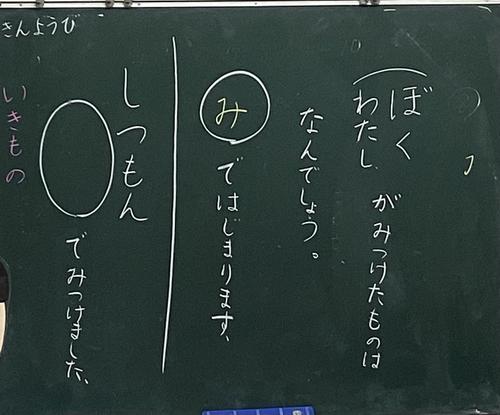 ぼく
わたし がみつけたものは
なんでしょう。
み ではじまります、
しつもん
でみつけました、
いきもの
きんようび